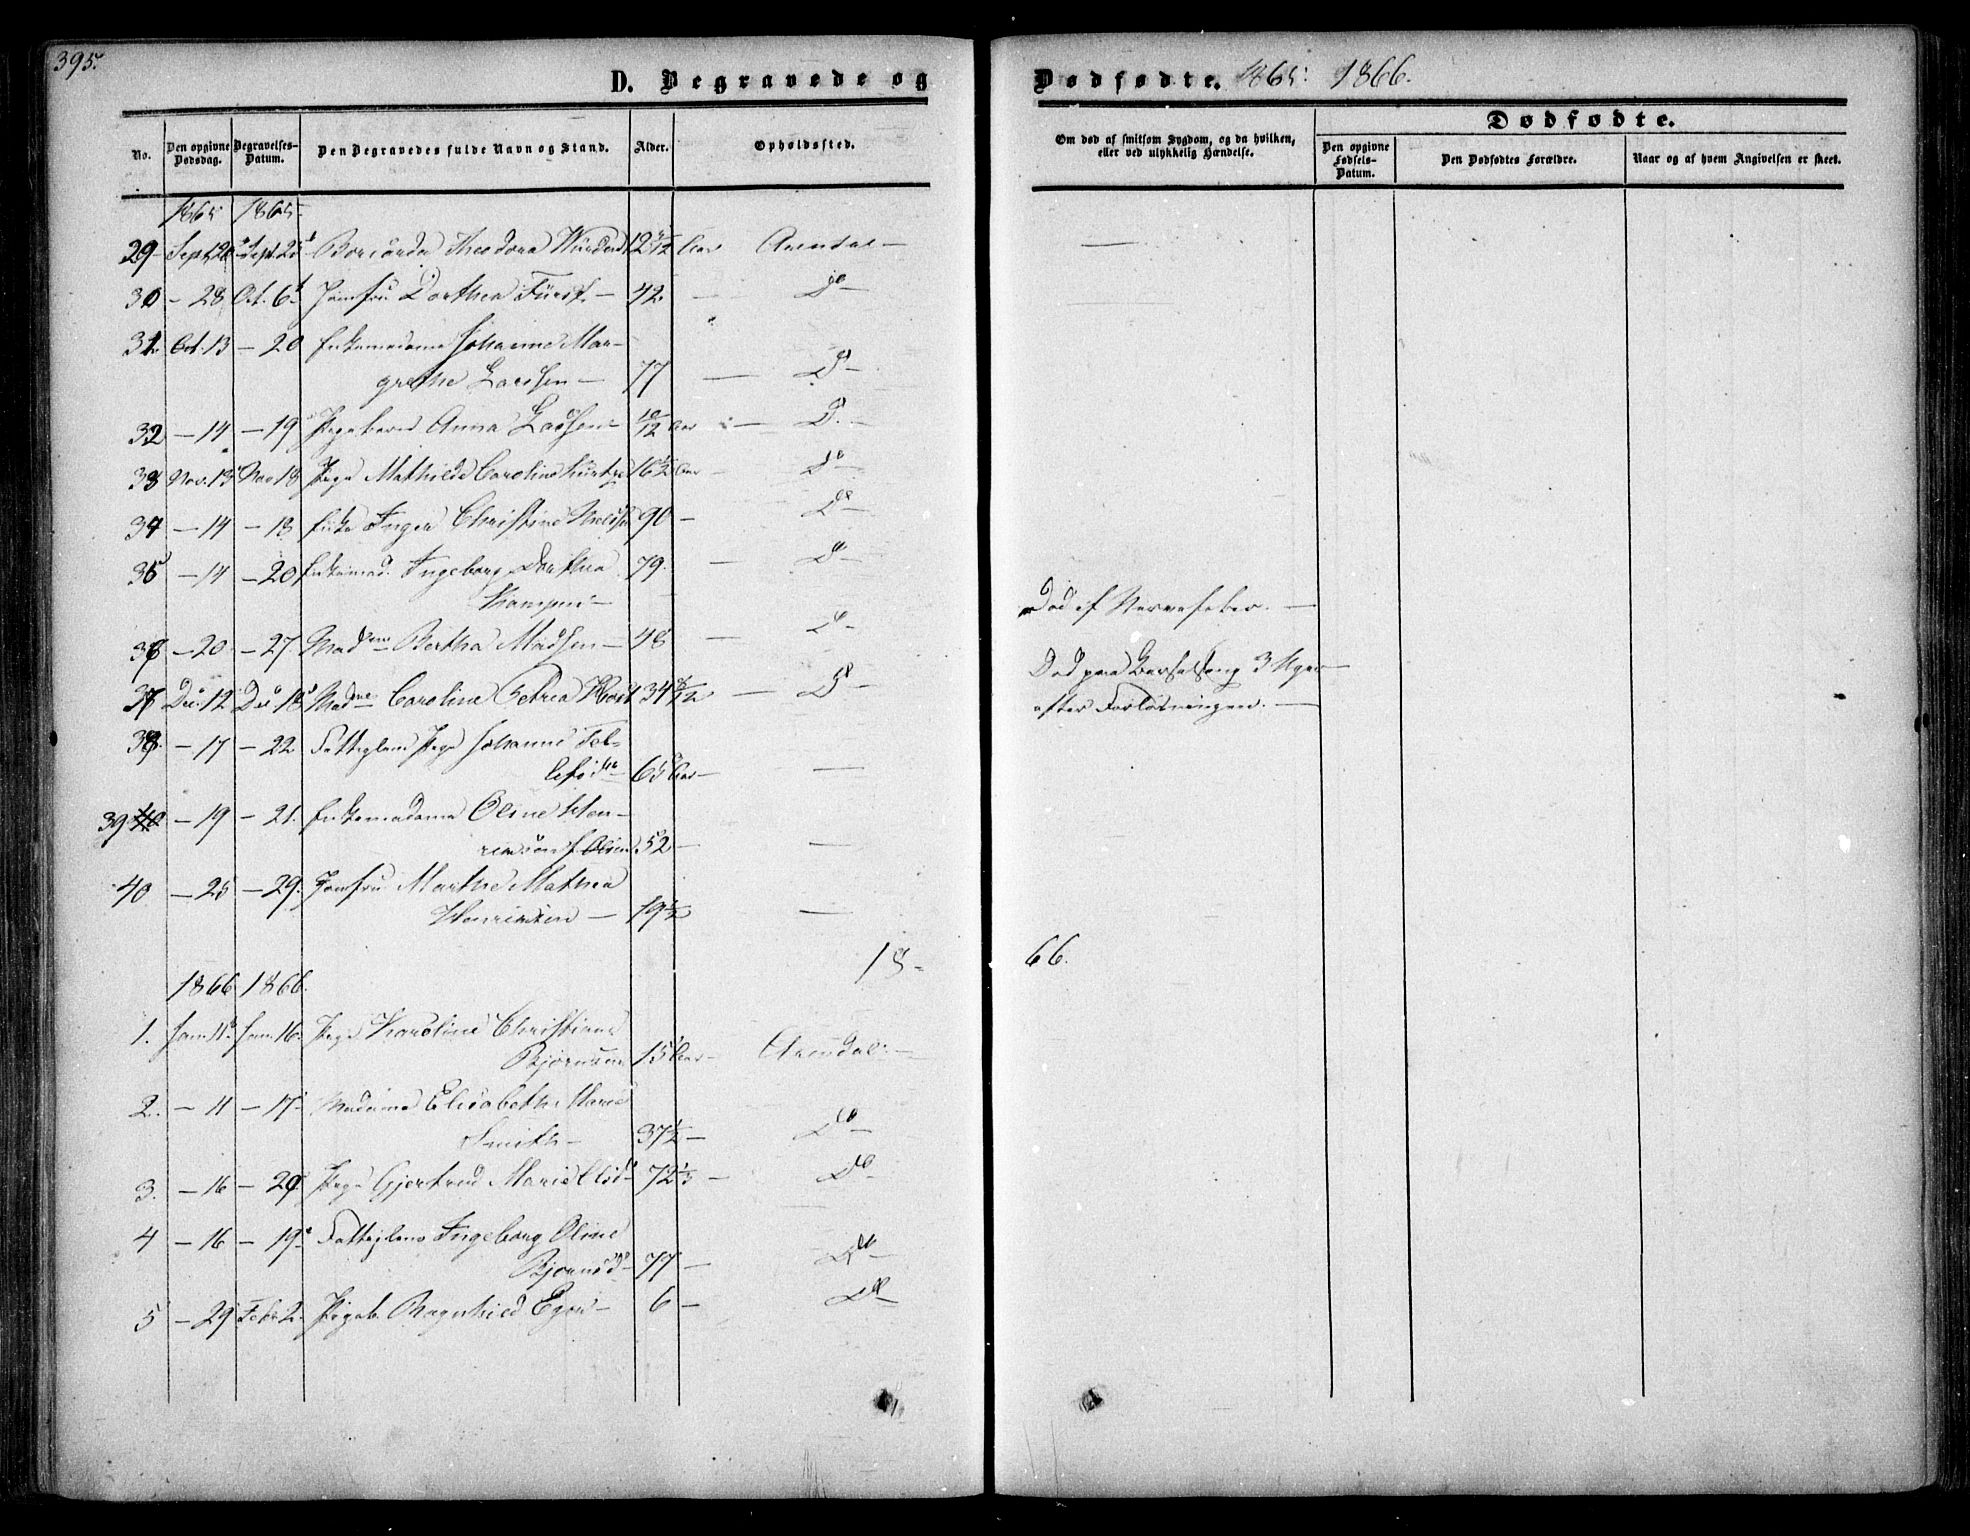 395.
D. Begravede og
Dødfødte. 1865. 1866.
No.
Den opgivne Dødsdag.
Begravelses-Datum.
Den Begravedes fulde Navn og Stand.
Alder.
Opholdssted.
Om død af smitsom Sygdom, og da hvilken, eller ved ulykkelig Hændelse.
Dødfødte.
Den opgivne Fødsels-Datum.
Den Dødfødtes Forældre.
Naar og af hvem Angivelsen er skeet.
1865 1865
29 Sept. Sept. 25 Theodora 12 Aar Arendal —
30 — 28 Oct. 6 Jomfru Dorthea Fürst — 42 — Do —
31 Oct. 13 — 20 Enkemadame Johanne Mar-
grethe Larssen — 77 — Do —
32 — 14 — 19 Pigebarn Anna Larssen 10/12 Aar — Do —
33 Nov. 13 Nov 18 Pige Mathilde Caroline 16 1/2 Aar — Do —
34 — 14 — 18 Enke Inger Christine 90 — Do —
35 — 14 — 20 Enkemad. Ingeborg Dorthea 79. — Do —
36 — 20 — 27 Madme Bertha Madsen — 48 — Do — Død af Nervefeber. —
37 Dec. 12 Dec 18 Madme Caroline Petrea 34 8/12 — Do — Død paa Barselseng 3 Uger
efter Forløsningen. —
38. — 17 — 22 Fattiglem Pige Johanne Tol-
lefsd. 65 Aar — —
39 40 — 19 — 21. Enkemadame Oline Hen-
f. Olsen 52 — —
40 — 25 — 29. Jomfru Marthe Mathea
Henriksen — 19 1/2 —
18- 66.
1866 1866.
1. Jan. 11 Jan. 16. Pige Karoline Christine
15 Aar — Arendal. —
2. — 11 — 17 Madame Elisabeth Marie
Smith — 37 1/2 — Do —
3. — 16 — Pige Gjertrud Marie 72 1/3 — Do —
4 — 16 — 19 Fattiglem Ingeborg Oline
Bjørnsd. 77 — Do —
5 — 29 Feb. 2. Pigeb. Ragnhild — 6 — Do —